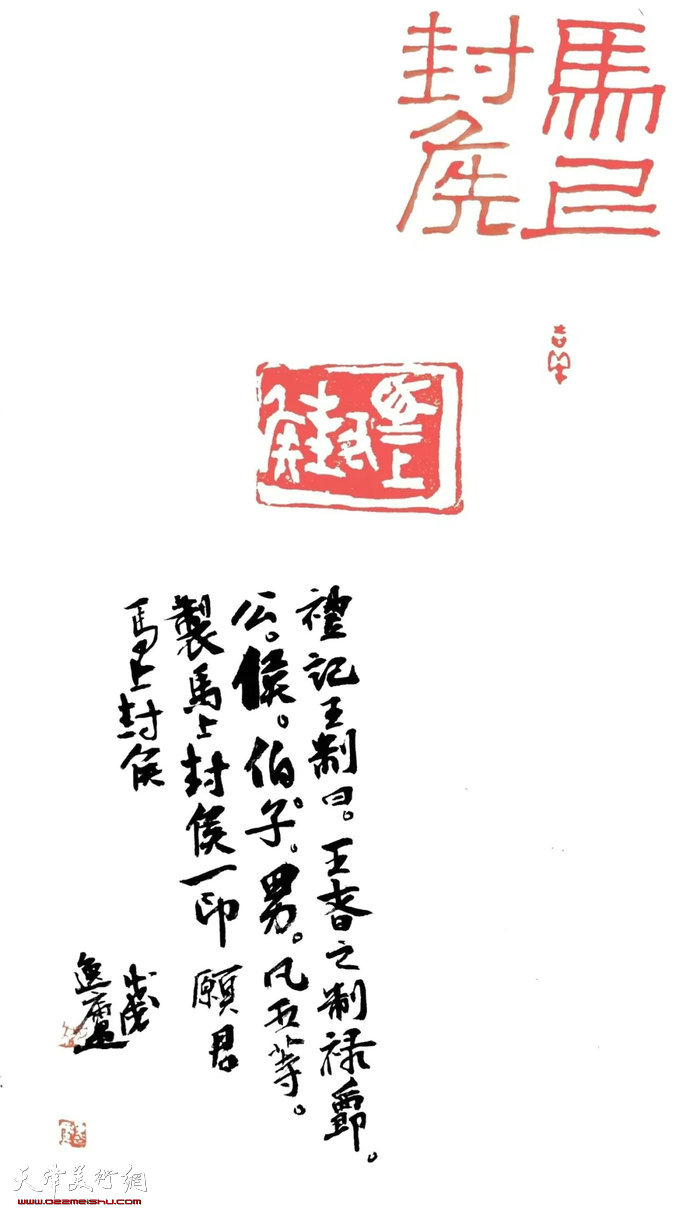 馬上
封侯
吉羊
馬上封侯
禮記王制曰。王者之制祿爵。
公。侯。伯。子。男。凡五等。
製馬上封侯一印 願君
馬上封侯
逸廬
天津美術網
www.022meishu.com